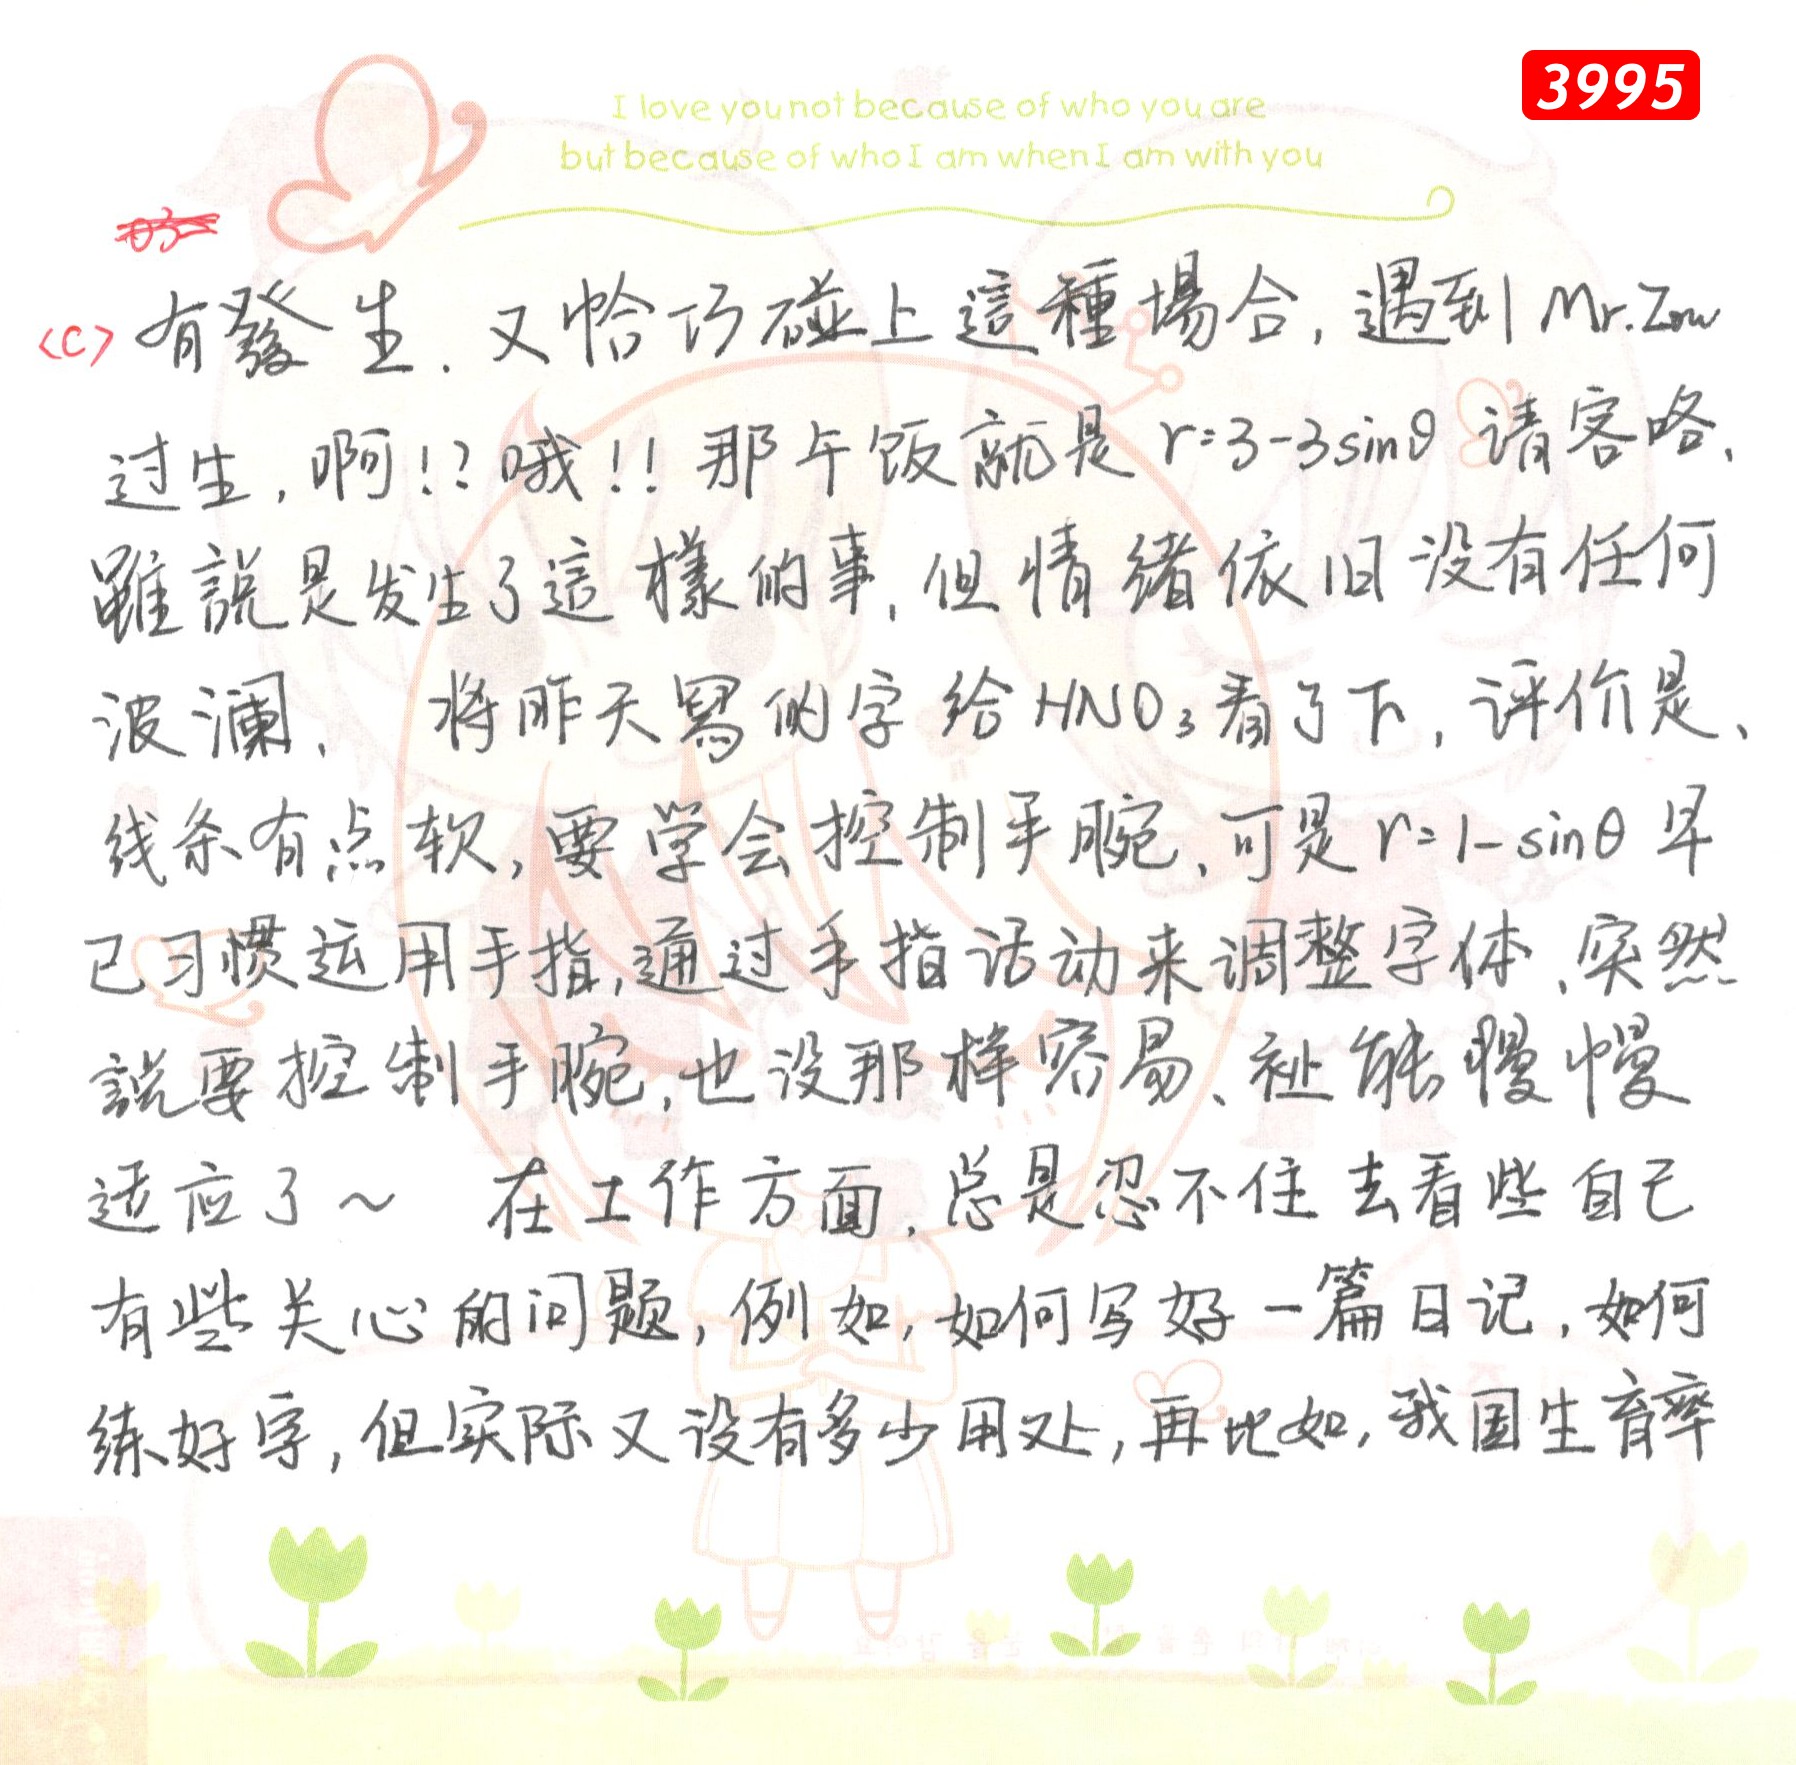 3995
I love you not because of who you are
but because of who I am when I am with you
<C> 有發生. 又恰巧碰上這種場合, 遇到 Mr.Zow
过生, 啊!? 哦!! 那午饭就是 r=3-3sinθ 请客咯、
雖說是发生了這樣的事, 但情緒依旧没有任何
波澜、 将昨天寫的字给HNO₃看了下, 评价是、
线条有点软, 要学会控制手腕、可是 r=1-sinθ 早
已习惯运用手指, 通过手指活动来调整字体、突然
說要控制手腕, 也没那样容易、祉能慢慢
适应了~ 在工作方面, 总是忍不住去看些自己
有些关心的问题, 例如, 如何写好一篇日记, 如何
练好字, 但实际又没有多少用处, 再比如, 我国生育率